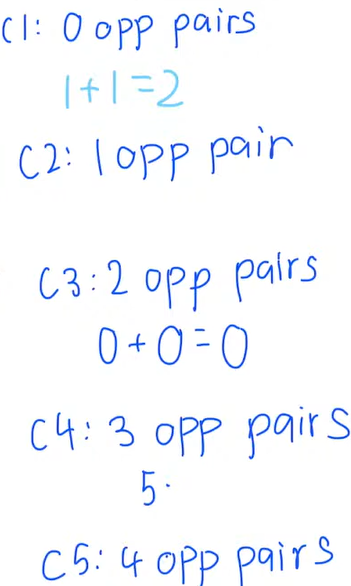 C1: 0 opp pairs
1+1=2
C2: 1 opp pair
C3: 2 opp pairs
0+0=0
C4: 3 opp pairs
5·
C5: 4 opp pairs